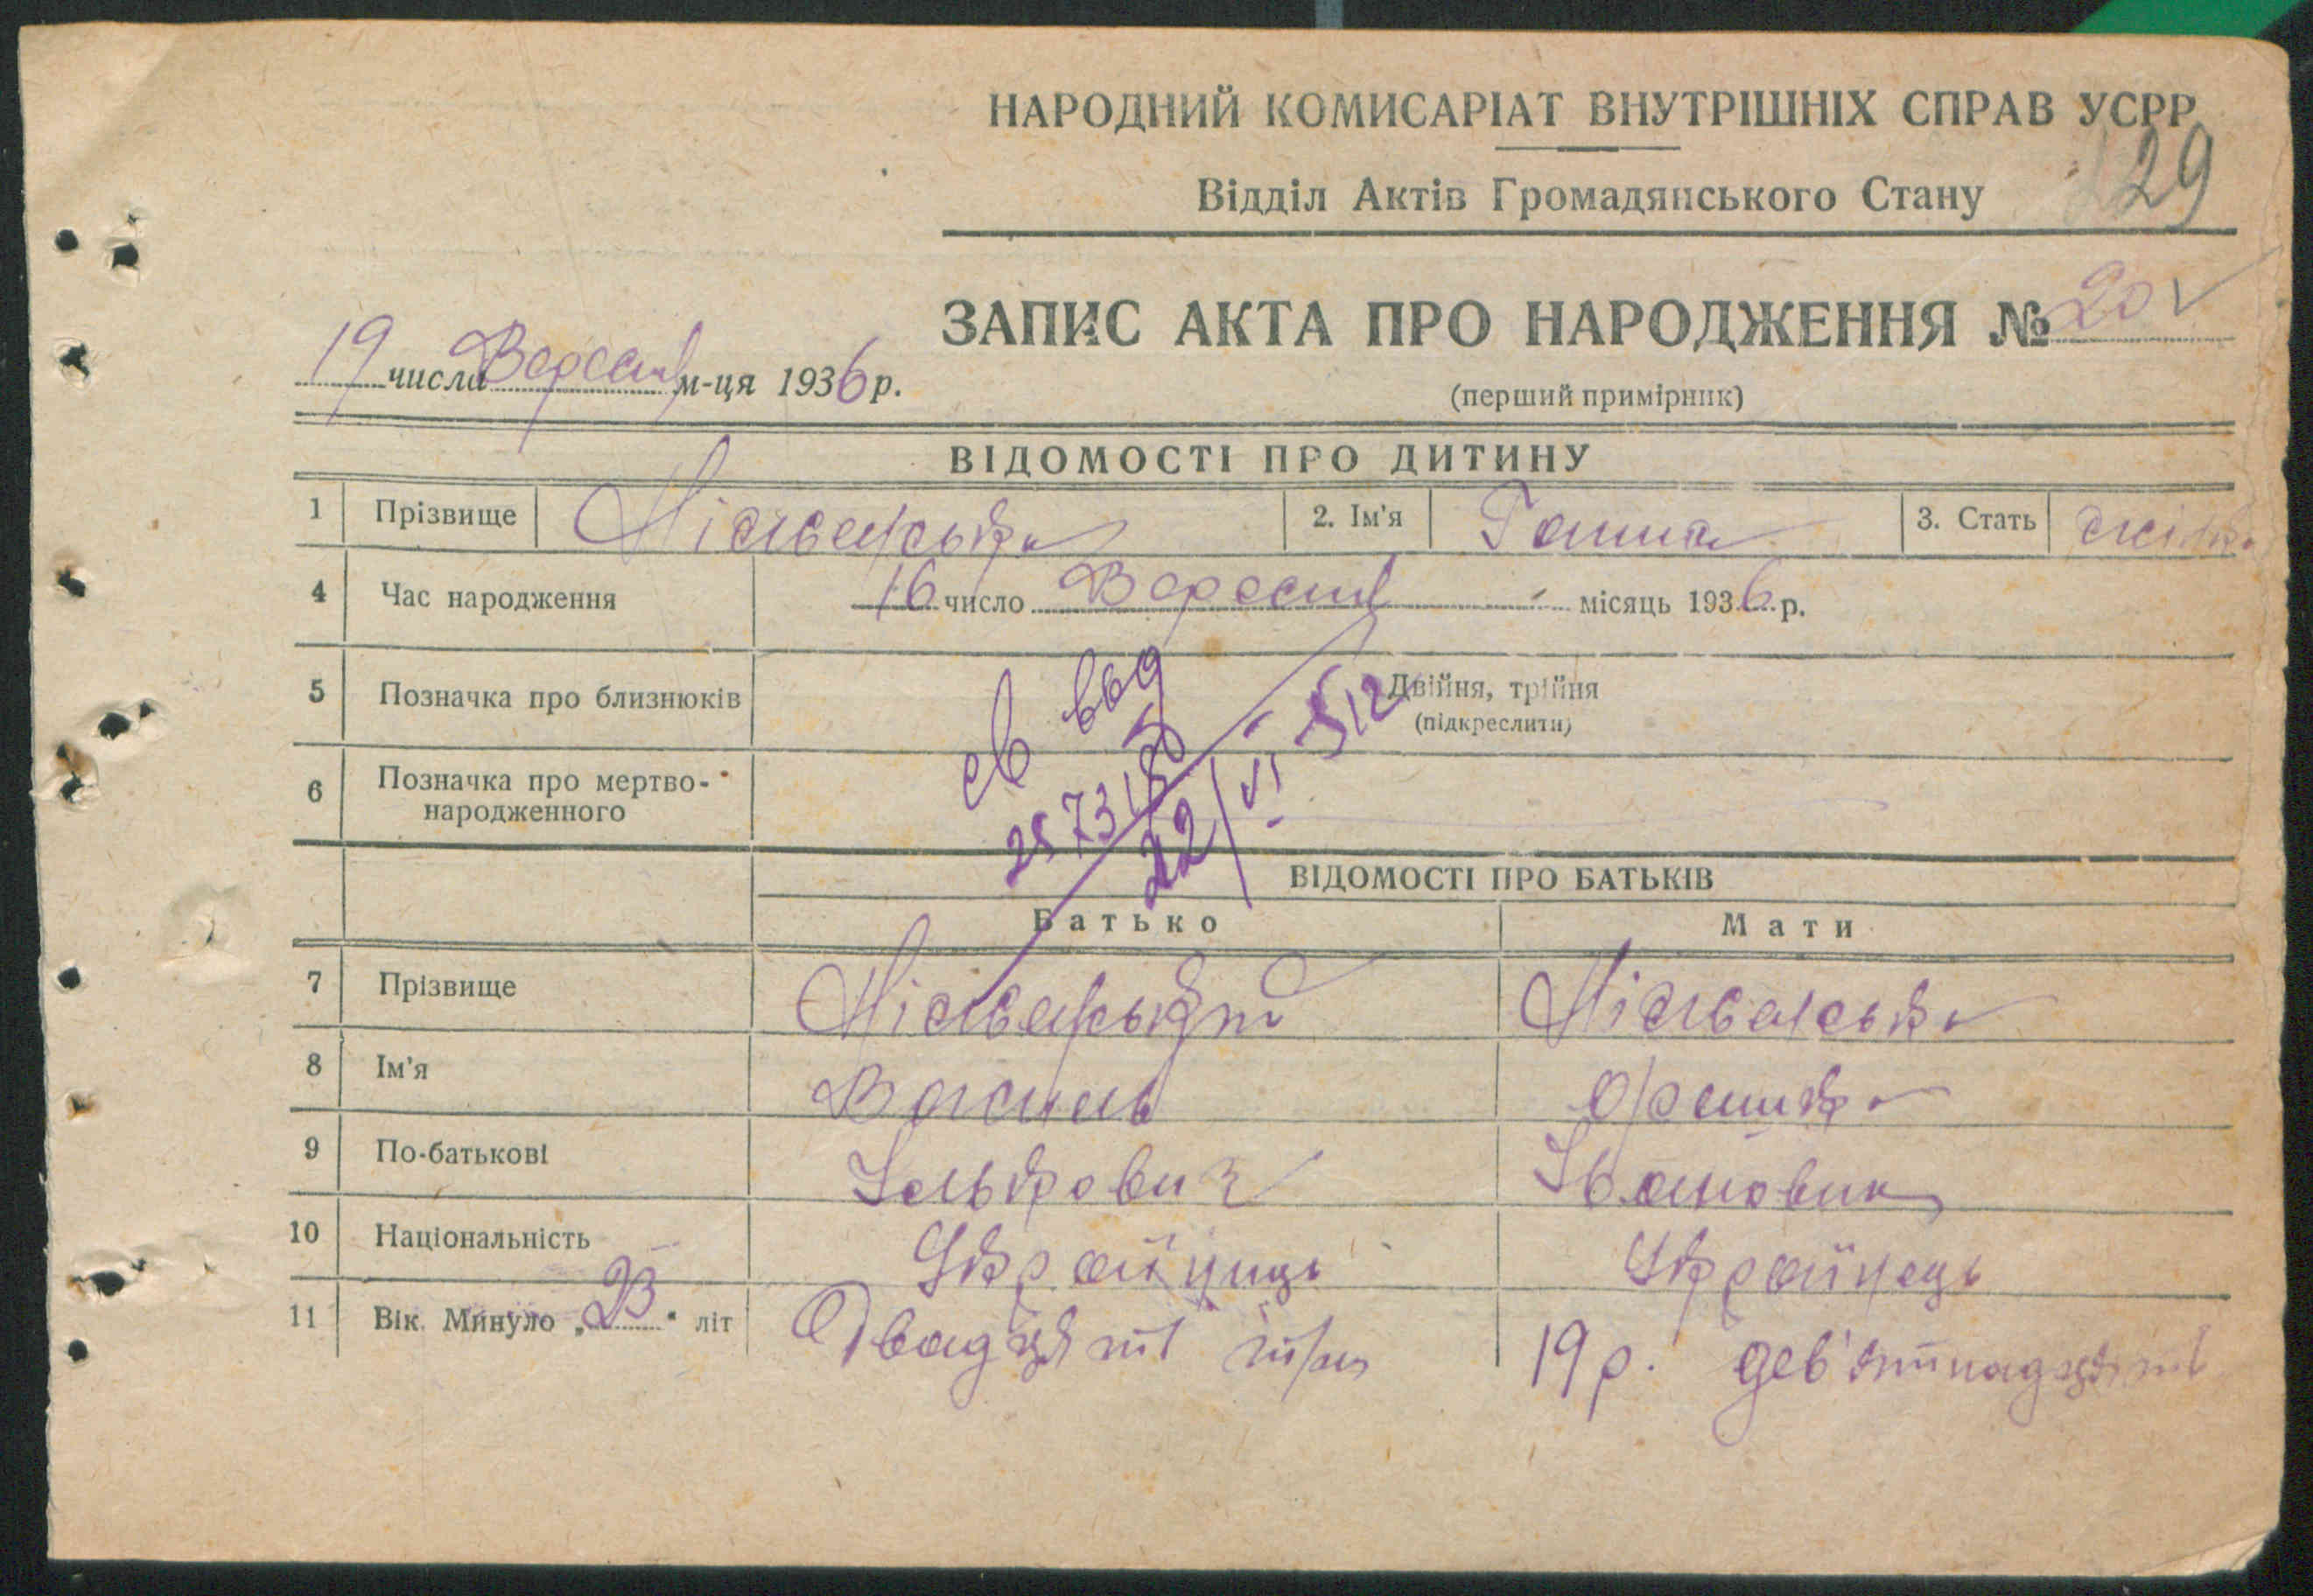 НАРОДНИЙ КОМИСАРІАТ ВНУТРІШНІХ СПРАВ УСРР
29
Відділ Актів Громадянського Стану
ЗАПИС АКТА ПРО НАРОДЖЕННЯ № 20
19 числа Вересня м-ця 1936 р.
(перший примірник)
ВІДОМОСТІ ПРО ДИТИНУ
1 Прізвище 2. Ім'я Ганна 3. Стать
4 Час народження 16 число Вересня місяць 1936 р.
5 Позначка про близнюків Двійня, трійня
(підкреслити)
6 Позначка про мертво-
народженного
св выд
22/VI
ВІДОМОСТІ ПРО БАТЬКІВ
Батько Мати
7 Прізвище
8 Ім'я Василь
9 По-батькові Івановна
10 Національність Українець Українець
11 Вік. Минуло „23" літ Двадцяти три 19 р. дев'ятнадцять